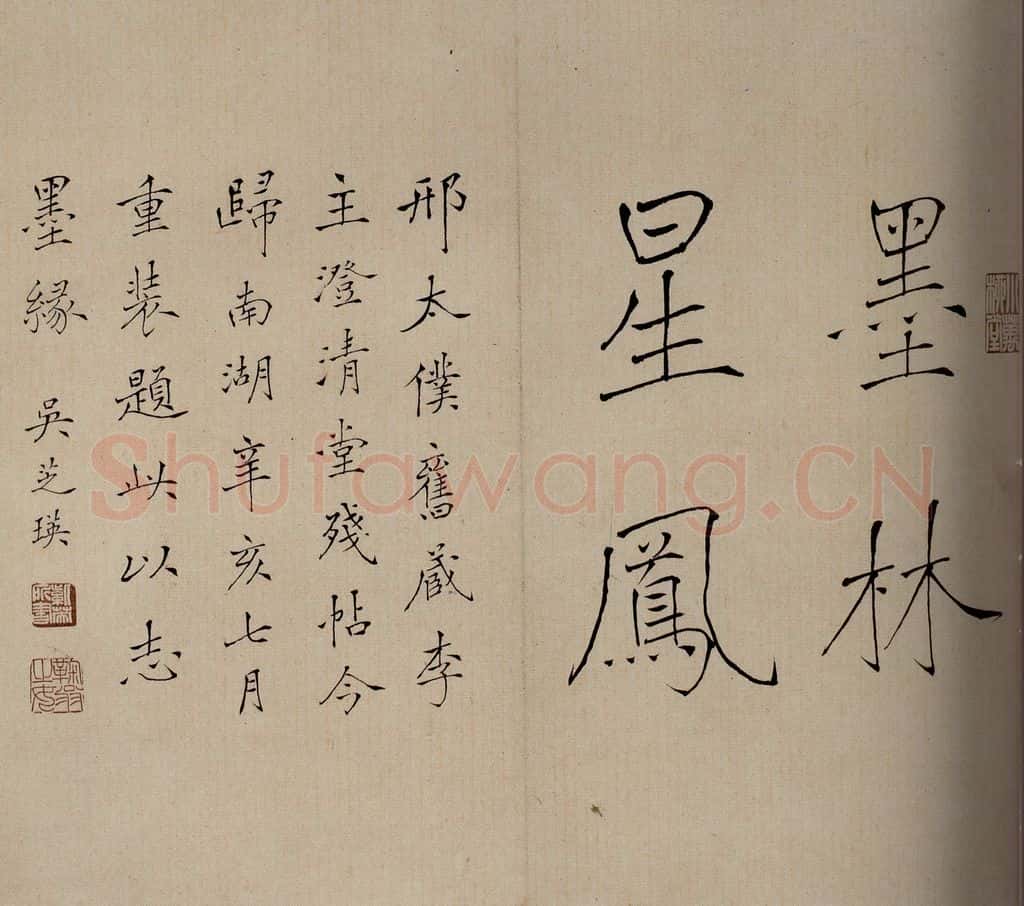 墨林
星鳳
邢太僕舊藏李
主澄清堂殘帖今
歸南湖辛亥七月
重裝題此以志
墨緣 吳芝瑛
Shufawang.CN